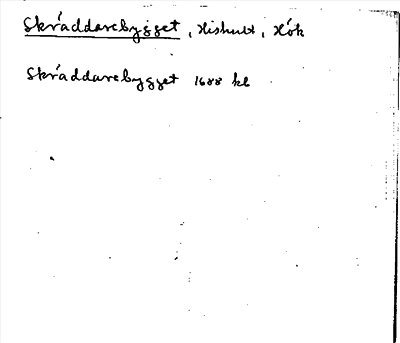 Skräddarebygget, Hishult, Hök
Skräddarebygget 1688 kb